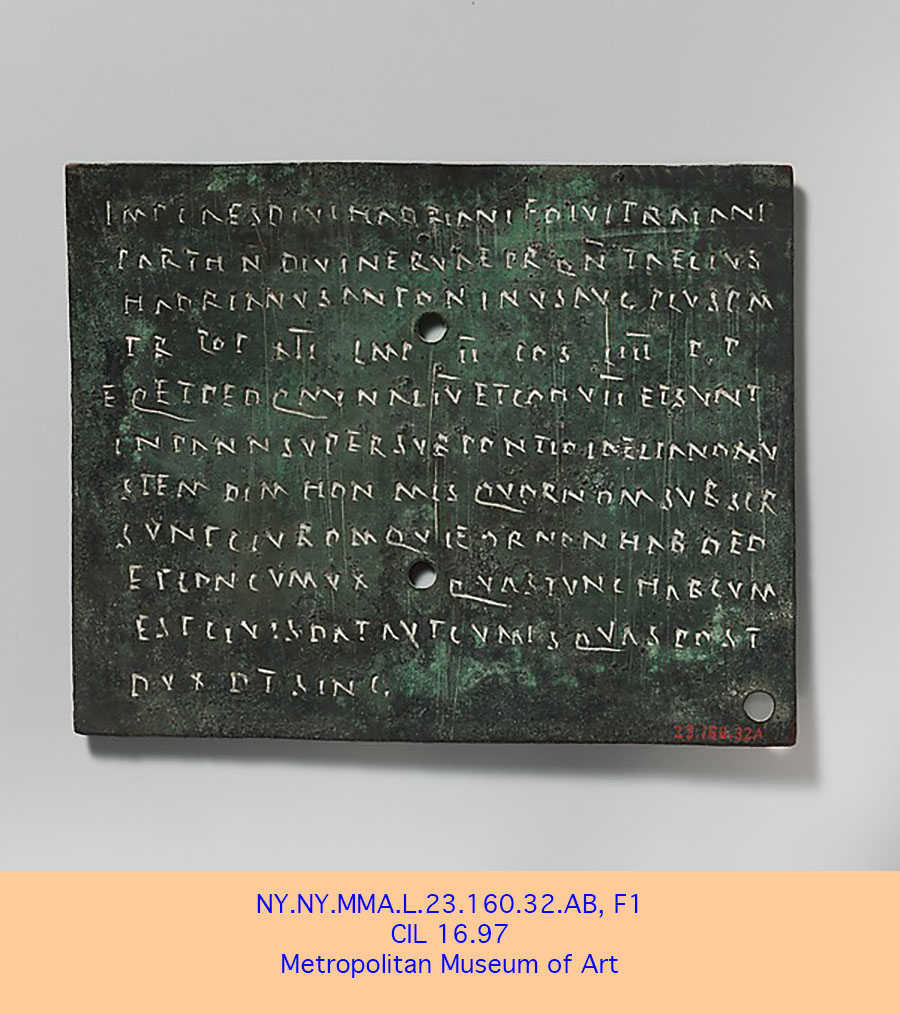 IMP CAES DIVI HADRIANI F DIVI TRAIANI
PARTH N DIVI NERVAE PRON T AELIVS
HADRIANVS ANTONINVS AVG PIVS P M
TR POT XIII IMP II COS IIII P P
EQ ET PED Q M IN AL IV ET COH VII ET SVNT
IN PANN SVPER SVB PONTIO LAELIANO XXV
STEM DIM HON MIS QVOR NOM SVBSCR
SVNT CIV ROM QVI EOR NON HAB DED
ET CON CVM VX QVAS TVNC HAB CVM
EST CIV IS DAT AVT CVM IS QVAS POST
DVX DT SING
23.160.32A
NY.NY.MMA.L.23.160.32.AB, F1
CIL 16.97
Metropolitan Museum of Art